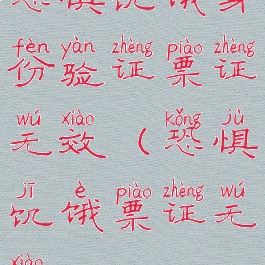 fèn yàn zhèng piào zhèng
份验证票证
wú xiào kǒng jù
无效（恐惧
jī è piào zhèng wú
饥饿票证无
xiào